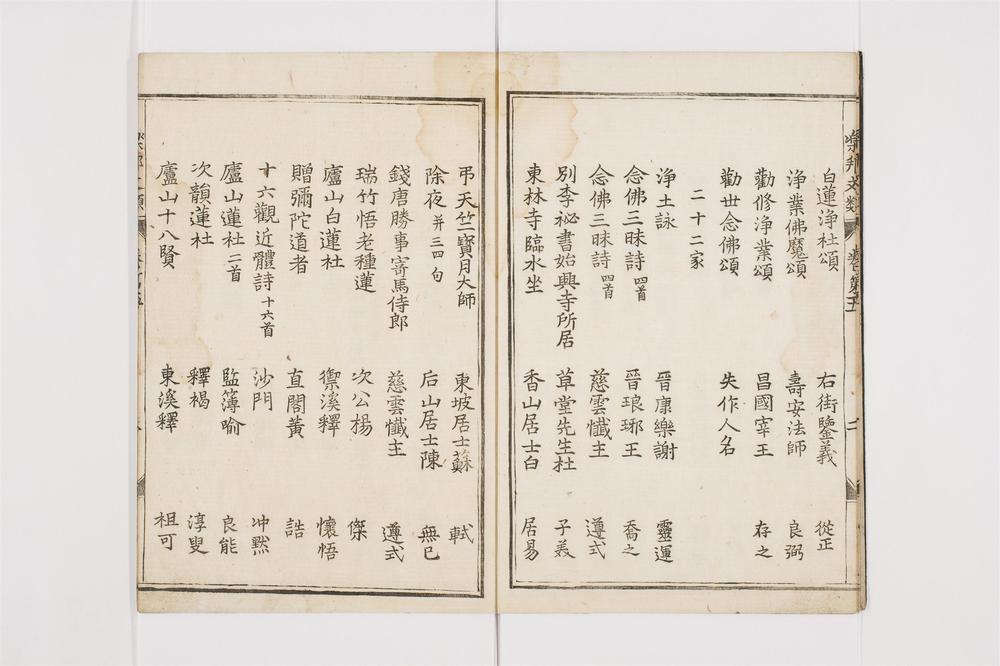 樂邦文類 卷第五 二
白蓮淨社頌 右街鑒義 從正
浄業佛魔頌 壽安法師 良弼
勸修浄業頌 昌國宰王 存之
勸世念佛頌 失作人名
二十二家
浄土詠 晉康樂謝 靈運
念佛三昧詩 四首 晉琅琊王 喬之
念佛三昧詩 四首 慈雲懺主 遵式
別李祕書始興寺所居 草堂先生杜 子美
東林寺臨水坐 香山居士白 居易
弔天竺寶月大師 東坡居士蘇 軾
除夜 并三四句 后山居士陳 無已
錢唐勝事寄馬侍郎 慈雲懺主 遵式
瑞竹悟老種蓮 次公楊 傑
廬山白蓮社 禦溪釋 懷悟
贈彌陀道者 直閣黃 誥
十六觀近體詩 十六首 沙門 冲黙
廬山蓮社 二首 監簿喻 良能
次韻蓮社 釋褐 淳叟
廬山十八賢 東溪釋 祖可